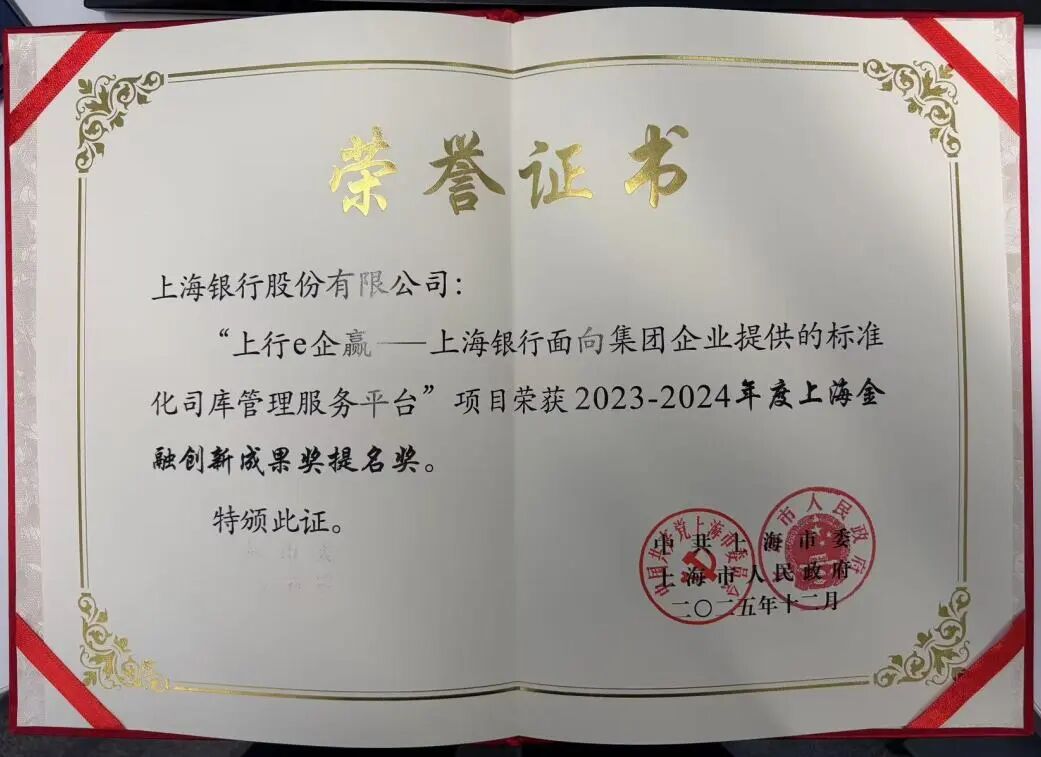 荣誉证书
上海银行股份有限公司：
“上行e企赢——上海银行面向集团企业提供的标准
化司库管理服务平台”项目荣获2023-2024年度上海金
融创新成果奖提名奖。
特颁此证。
中共上海市委
上海市人民政府
二〇二五年十二月
中国共产党上海市委员会
市人民政府